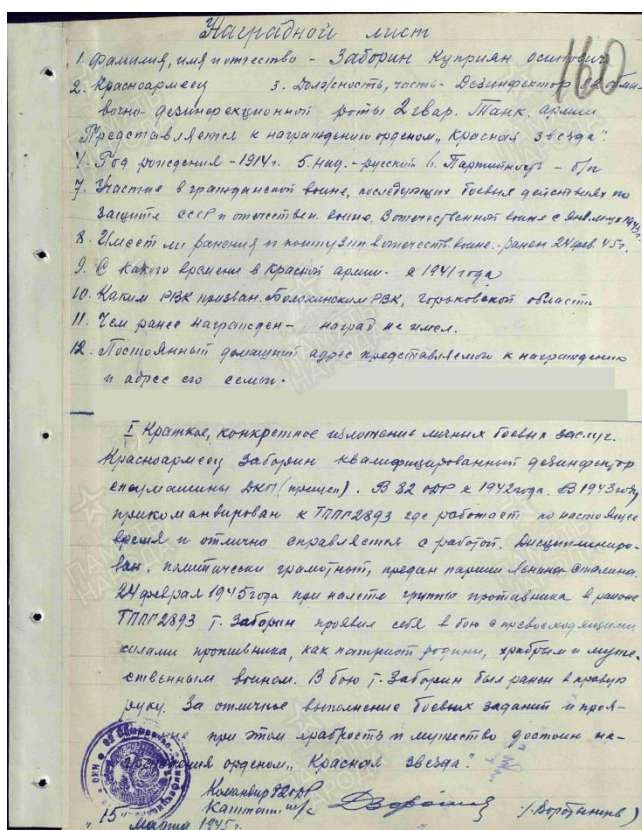 Наградной лист
160
1. Фамилия, имя и отчество - Заборин Куприян Осипович
2. Красноармеец 3. Должность, часть - Дезинфектор 82 обмы-
вочно-дезинфекционной роты 2 гвар. Танк. армии
Представляется к награждению орденом „Красная звезда".
4. Год рождения - 1914г. 5. Нац. - русский 6. Партийность - б/п
7. Участие в гражданской войне, последующих боевых действиях по
защите СССР и отечествен. войне. В отечественной войне с
8. Имеет ли ранения и контузии в отечеств. войне. - ранен 24 фев. 45 г.
9. С какого времени в Красной армии - с 1941 года
10. Каким РВК призван. РВК, Горьковской области
11. Чем ранее награжден - наград не имел.
12. Постоянный домашний адрес представляемого к награждению
и адрес его семьи.
I Краткое, конкретное изложение личных боевых заслуг.
Красноармеец Заборин квалифицированный дезинфектор
спецмашины ДКП (прицеп). В 82 ОДР с 1942 года. В 1943 году
прикомандирован к ТППГ 2893 где работает по настоящее
время и отлично справляется с работой. Дисциплиниро-
ван, политически грамотный, предан партии Ленина-Сталина.
24 февраля 1945 года при налете группы противника в районе
ТППГ 2893 т. Заборин проявил себя в бою с превосходящими
силами противника, как патриот родины, храбрым и муже-
ственным воином. В бою т. Заборин был ранен в правую
руку. За отличное выполнение боевых заданий и проя-
при этом храбрость и мужество достоин на-
граждения орденом „Красная звезда".
Командир 82 ОДР
Капитан м/с
„15" марта 1945г.
ПАМЯТЬ НАРОДА